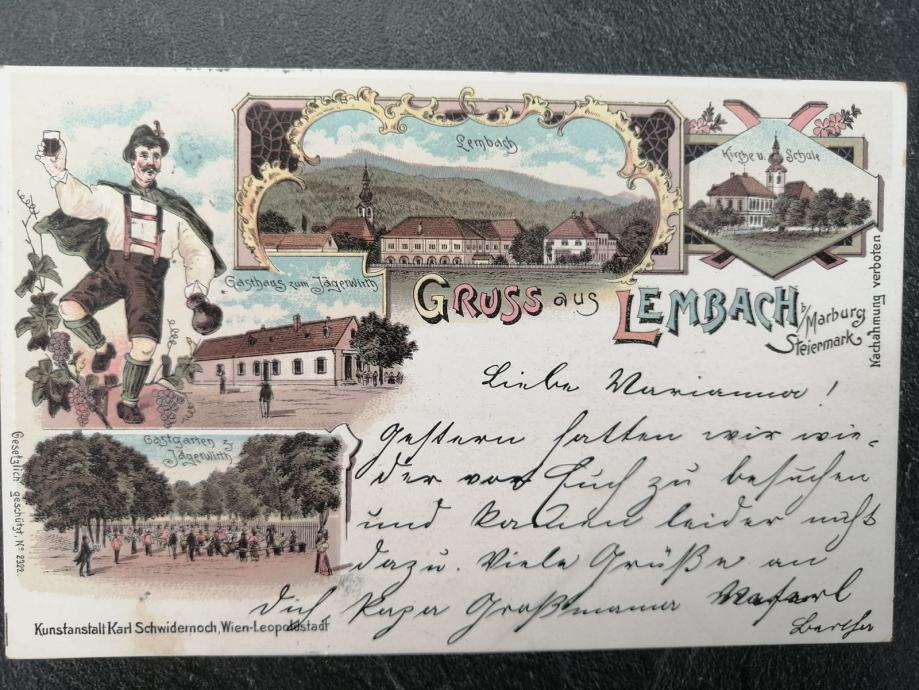 Lembach
Kirche u. Schule
Gasthaus zum Jägerwirth
GRUSS aus LEMBACH
b/Marburg
Steiermark
Nachahmung verboten
Liebe Marianna!
Gestern hatten wir wie-
der vor Euch zu besuchen
und kamen leider nicht
dazu. Viele Grüße an
Dich, Papa Großmama
Bertha
Gastgarten z.
Jägerwirth
Gesetzlich geschützt, No 2322
Kunstanstalt Karl Schwidernoch, Wien-Leopoldstadt